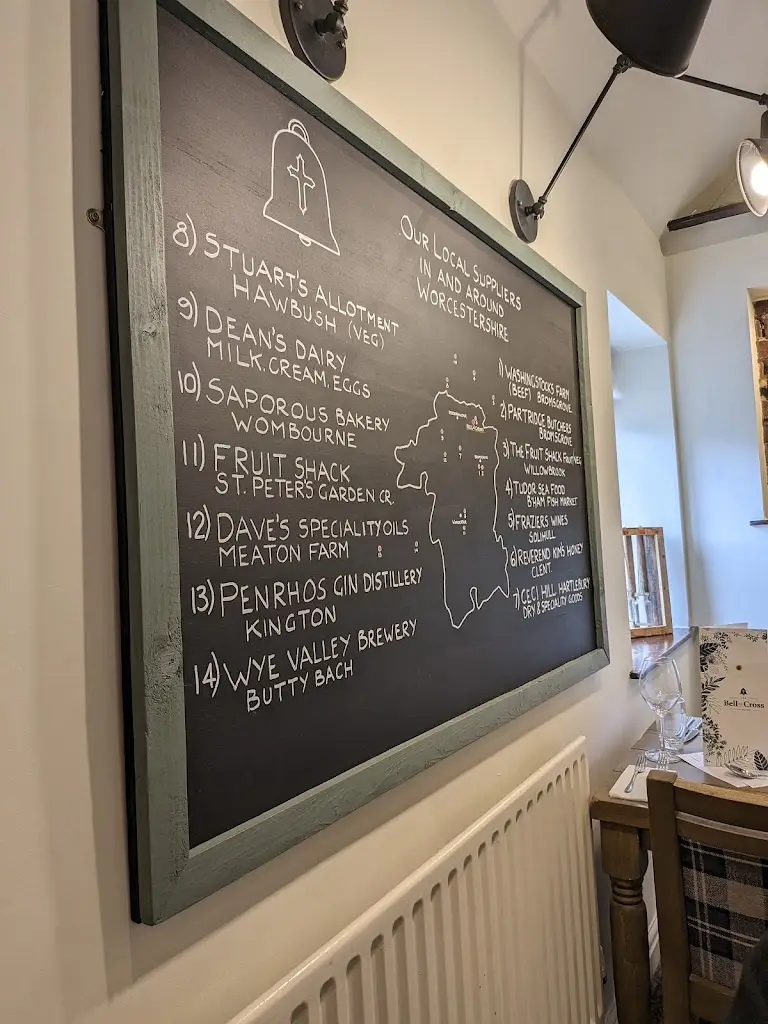 Our Local Suppliers
in and around
Worcestershire
1) Washingstocks Farm
(Beef) Bromsgrove
2) Partridge Butchers
Bromsgrove
3) The Fruit Shack Fruit/Veg
Willowbrook
4) Tudor Sea Food
B'ham Fish Market
5) Fraziers Wines
Solihull
6) Reverend Kim's Honey
Clent.
7) Ceci Hill Hartlebury
Dry & Speciality Goods
8) Stuart's Allotment
Hawbush (Veg)
9) Dean's Dairy
Milk. Cream. Eggs
10) Saporous Bakery
Wombourne
11) Fruit Shack
St. Peter's Garden Cr.
12) Dave's Speciality Oils
Meaton Farm
13) Penrhos Gin Distillery
Kington
14) Wye Valley Brewery
Butty Bach
Bell & Cross